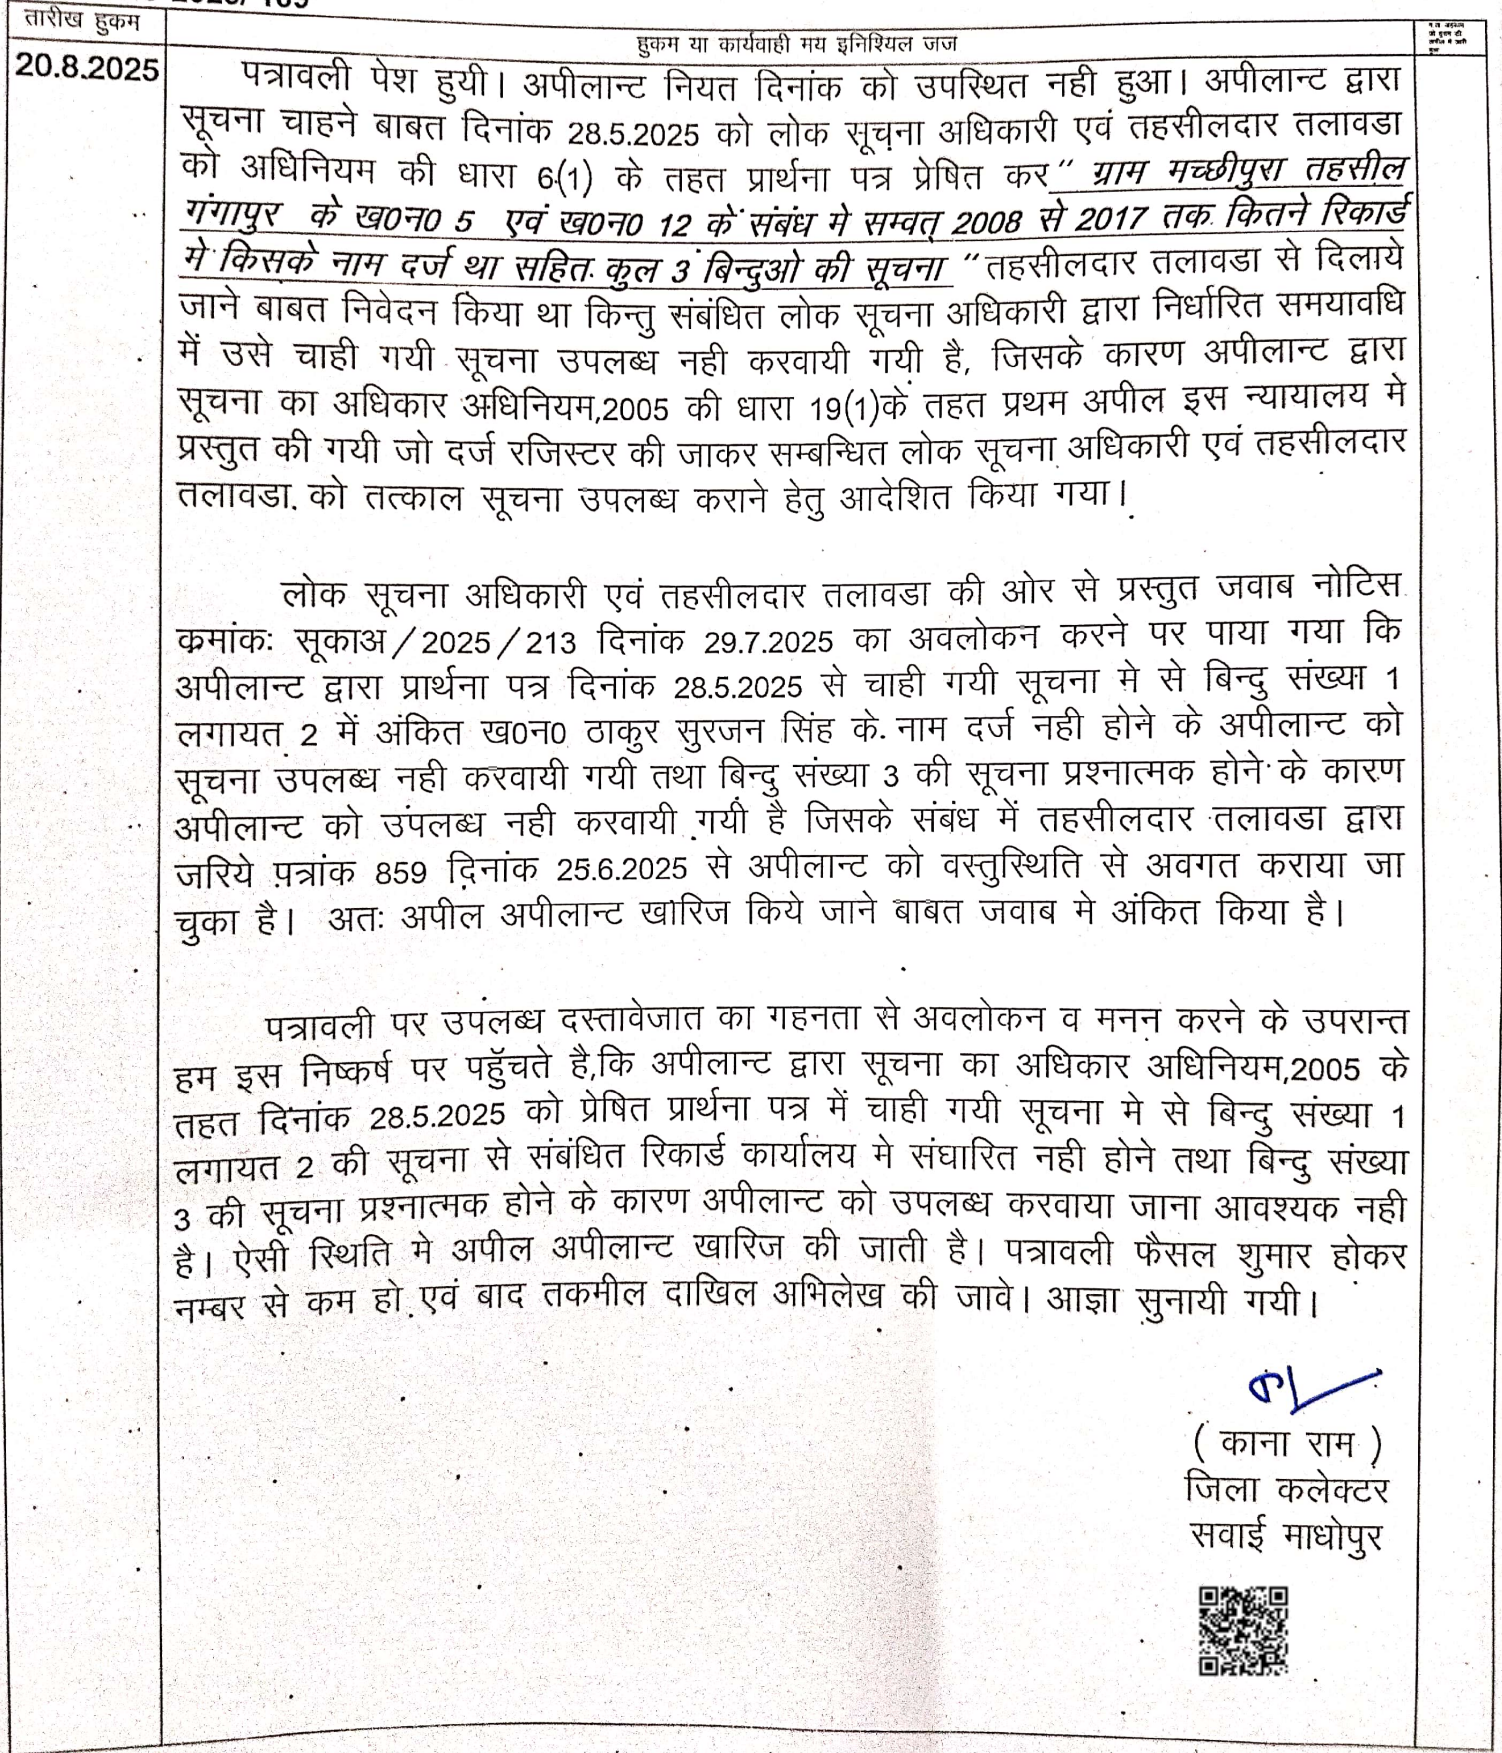 तारीख हुकम
हुकम या कार्यवाही मय इनिश्यिल जज
20.8.2025
पत्रावली पेश हुयी। अपीलान्ट नियत दिनांक को उपस्थित नही हुआ। अपीलान्ट द्वारा
सूचना चाहने बाबत दिनांक 28.5.2025 को लोक सूचना अधिकारी एवं तहसीलदार तलावडा
को अधिनियम की धारा 6(1) के तहत प्रार्थना पत्र प्रेषित कर " ग्राम मच्छीपुरा तहसील
गंगापुर के ख0न0 5 एवं ख0न0 12 के संबंध मे सम्वत् 2008 से 2017 तक कितने रिकार्ड
मे किसके नाम दर्ज था सहित कुल 3 बिन्दुओ की सूचना " तहसीलदार तलावडा से दिलाये
जाने बाबत निवेदन किया था किन्तु संबंधित लोक सूचना अधिकारी द्वारा निर्धारित समयावधि
में उसे चाही गयी सूचना उपलब्ध नही करवायी गयी है, जिसके कारण अपीलान्ट द्वारा
सूचना का अधिकार अधिनियम,2005 की धारा 19(1)के तहत प्रथम अपील इस न्यायालय मे
प्रस्तुत की गयी जो दर्ज रजिस्टर की जाकर सम्बन्धित लोक सूचना अधिकारी एवं तहसीलदार
तलावडा को तत्काल सूचना उपलब्ध कराने हेतु आदेशित किया गया।
लोक सूचना अधिकारी एवं तहसीलदार तलावडा की ओर से प्रस्तुत जवाब नोटिस
क्रमांकः सूकाअ/2025/213 दिनांक 29.7.2025 का अवलोकन करने पर पाया गया कि
अपीलान्ट द्वारा प्रार्थना पत्र दिनांक 28.5.2025 से चाही गयी सूचना मे से बिन्दु संख्या 1
लगायत 2 में अंकित ख0न0 ठाकुर सुरजन सिंह के नाम दर्ज नही होने के अपीलान्ट को
सूचना उपलब्ध नही करवायी गयी तथा बिन्दु संख्या 3 की सूचना प्रश्नात्मक होने के कारण
अपीलान्ट को उपलब्ध नही करवायी गयी है जिसके संबंध में तहसीलदार तलावडा द्वारा
जरिये पत्रांक 859 दिनांक 25.6.2025 से अपीलान्ट को वस्तुस्थिति से अवगत कराया जा
चुका है। अतः अपील अपीलान्ट खारिज किये जाने बाबत जवाब मे अंकित किया है।
पत्रावली पर उपलब्ध दस्तावेजात का गहनता से अवलोकन व मनन करने के उपरान्त
हम इस निष्कर्ष पर पहुॅचते है,कि अपीलान्ट द्वारा सूचना का अधिकार अधिनियम,2005 के
तहत दिनांक 28.5.2025 को प्रेषित प्रार्थना पत्र में चाही गयी सूचना मे से बिन्दु संख्या 1
लगायत 2 की सूचना से संबंधित रिकार्ड कार्यालय मे संघारित नही होने तथा बिन्दु संख्या
3 की सूचना प्रश्नात्मक होने के कारण अपीलान्ट को उपलब्ध करवाया जाना आवश्यक नही
है। ऐसी स्थिति मे अपील अपीलान्ट खारिज की जाती है। पत्रावली फैसल शुमार होकर
नम्बर से कम हो एवं बाद तकमील दाखिल अभिलेख की जावे। आज्ञा सुनायी गयी।
( काना राम )
जिला कलेक्टर
सवाई माधोपुर